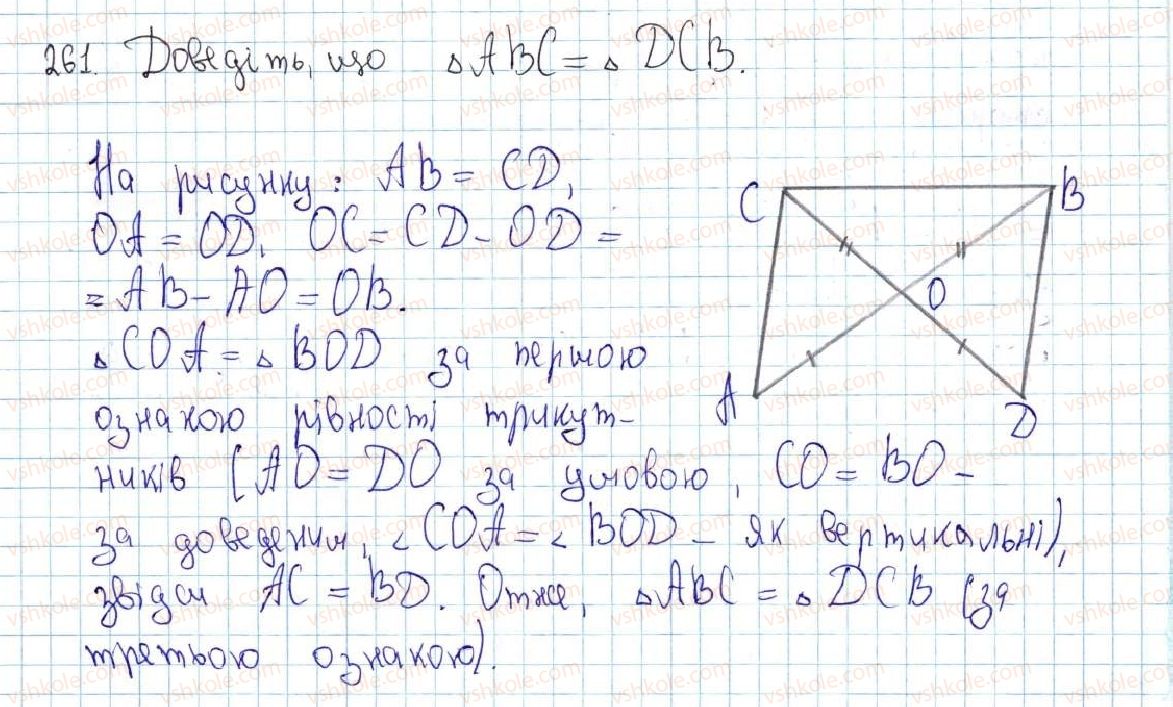 261. Доведіть, що ▵ABC = ▵DCB.
На рисунку: AB = CD,
OA = OD. OC = CD - OD =
= AB - AO = OB.
▵COA = ▵BOD за першою
ознакою рівності трикут-
ників (AO = DO за умовою, CO = BO -
за доведеним, ∠COA = ∠BOD - як вертикальні),
звідси AC = BD. Отже, ▵ABC = ▵DCB (за
третьою ознакою).
C
B
O
A
D
vshkole.com